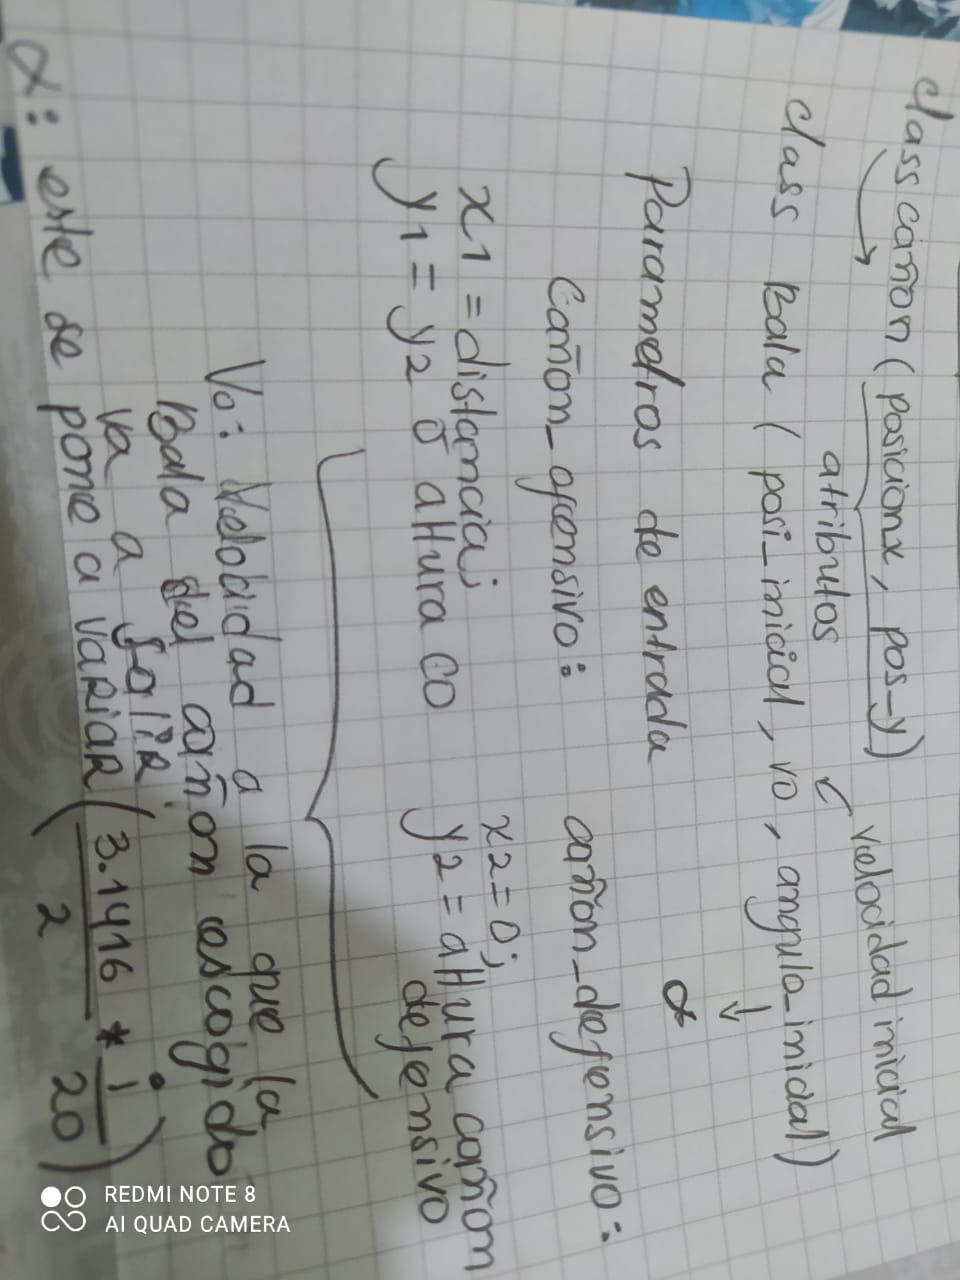 class cañon (posicionx, pos-y)
velocidad inicial
atributos
class Bala ( posi_inicial, vo, angulo_inicial)
α
Parametros de entrada
Cañon_ofensivo:
cañon_defensivo:
x1 = distancia;
y1 = y2 ō altura co
x2=0;
y2 = altura cañon
defensivo
Vo: Velocidad a la que la
Bala del cañon escogido
va a salir
α: este se pone a variar (3.1416/2 * i/20)
REDMI NOTE 8
AI QUAD CAMERA